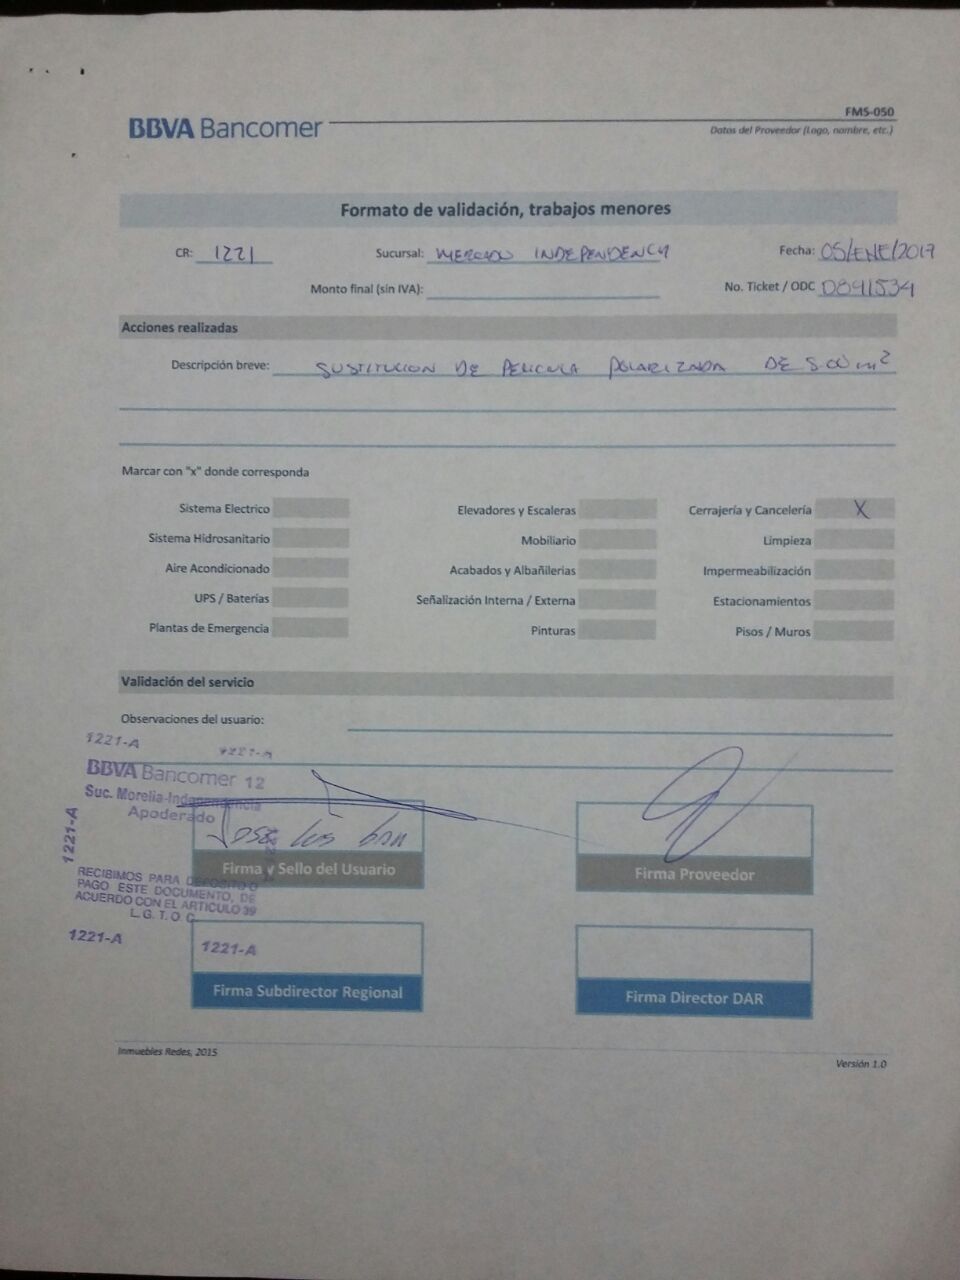 FMS-050
BBVA Bancomer
Datos del Proveedor (Logo, nombre, etc.)
Formato de validación, trabajos menores
CR: 1221 Sucursal: MERCADO INDEPENDENCIA Fecha: 05/ENE/2017
Monto final (sin IVA): No. Ticket / ODC 0891534
Acciones realizadas
Descripción breve: SUSTITUCION DE PELICULA POLARIZADA DE 5.00 m²
Marcar con "x" donde corresponda
Sistema Electrico Elevadores y Escaleras Cerrajería y Cancelería X
Sistema Hidrosanitario Mobiliario Limpieza
Aire Acondicionado Acabados y Albañilerias Impermeabilización
UPS / Baterías Señalización Interna / Externa Estacionamientos
Plantas de Emergencia Pinturas Pisos / Muros
Validación del servicio
Observaciones del usuario:
1221-A 1221-A
BBVA Bancomer 12
Suc. Morelia-Independencia
Apoderado
1221-A
Jose Luis
Firma y Sello del Usuario
Firma Proveedor
RECIBIMOS PARA DEPOSITO O
PAGO ESTE DOCUMENTO, DE
ACUERDO CON EL ARTICULO 39
L. G. T. O. C.
1221-A 1221-A
Firma Subdirector Regional
Firma Director DAR
Inmuebles Redes, 2015
Versión 1.0